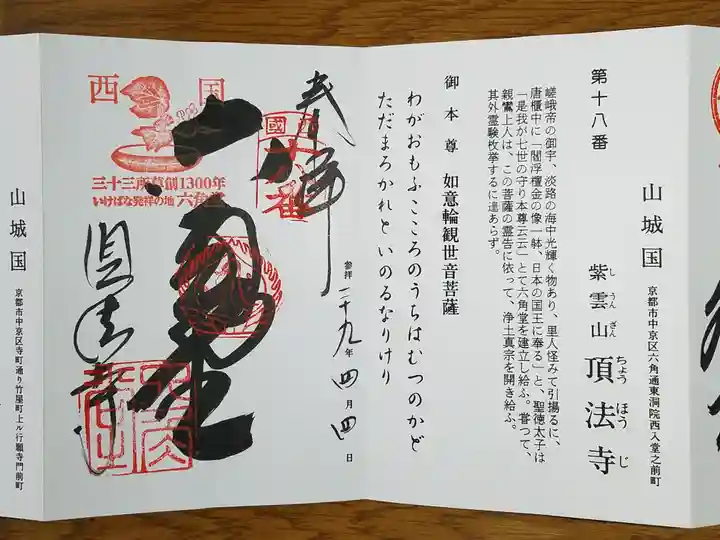 山城国
京都市中京区六角通東洞院西入堂之前町
紫雲山 頂法寺
しうんざん ちょうほうじ
第十八番
嵯峨帝の御宇、淡路の海中光輝く物あり、里人怪みて引揚るに、
唐櫃中に「閻浮檀金の像一躰、日本の国王に奉る」と、聖徳太子は
「是我が七世の守り本尊云云」とて六角堂を建立し給ふ。嘗つて、
親鸞上人は、この菩薩の霊告に依って、浄土真宗を開き給ふ。
其外霊験枚挙するに遑あらず。
御本尊 如意輪観世音菩薩
わがおもふこころのうちはむつのかど
ただまろかれといのるなりけり
奉拝
参拝 二十九年 四月 四日
西国
三十三所草創1300年
いけばな発祥の地 六角堂
西國
十八番
六角堂
頂法寺
山城国
京都市中京区寺町通り竹屋町上ル行願寺門前町